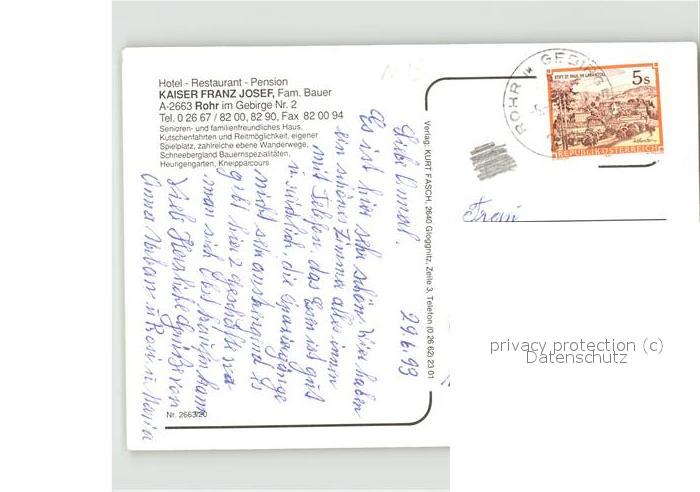 Hotel - Restaurant - Pension
KAISER FRANZ JOSEF, Fam. Bauer
A-2663 Rohr im Gebirge Nr. 2
Tel. 0 26 67 / 82 00, 82 90, Fax 82 00 94
Senioren- und familienfreundliches Haus,
Kutschenfahrten und Reitmöglichkeit, eigener
Spielplatz, zahlreiche ebene Wanderwege,
Schneebergland Bauernspezialitäten,
Heurigengarten, Kneipparcours
Nr. 2663/20
Verlag: KURT FASCH, 2640 Gloggnitz, Zeile 3, Telefon (0 26 62) 23 01
29.6.93
Es ist hier sehr schön. Wir haben
ein schönes Zimmer alles innen
mit Telefon, das Essen ist gut
die Spaziergänge
nicht sehr anstrengend Es
gibt hier 2 Geschäfte wo
man sich Obst kaufen kann
Viele Herzliche Grüße von
Anna
ROHR
GEBIRGE
STIFT ST. PAUL IM LAVANTTAL
5 S
REPUBLIK ÖSTERREICH
Frau
privacy protection (c)
Datenschutz